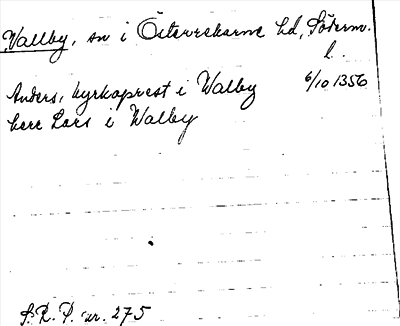 Wallby, sn i Österrekarne hd, Söderm.
l.
Anders, kyrkoprest i Walby 6/10 1356
herr Lars i Walby
S. R. P. nr. 275